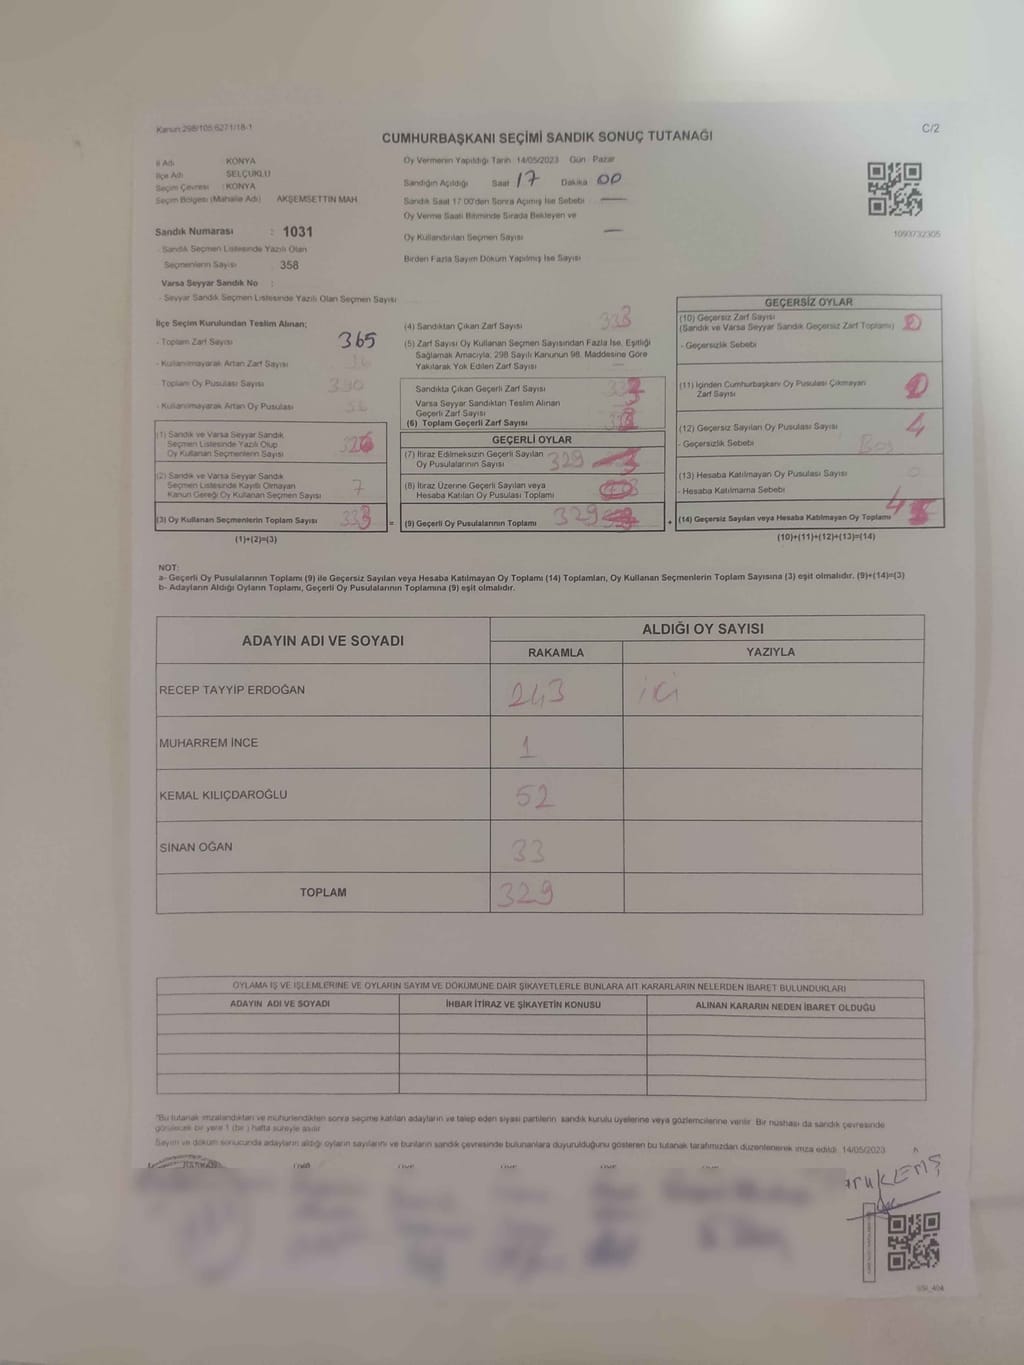 Kanun:298/105;6271/18-1
C/2
CUMHURBAŞKANI SEÇİMİ SANDIK SONUÇ TUTANAĞI
İl Adı KONYA
İlçe Adı SELÇUKLU
Seçim Çevresi : KONYA
Seçim Bölgesi (Mahalle Adı) AKŞEMSETTİN MAH.
Sandık Numarası : 1031
- Sandık Seçmen Listesinde Yazılı Olan
Seçmenlerin Sayısı 358
Varsa Seyyar Sandık No :
- Seyyar Sandık Seçmen Listesinde Yazılı Olan Seçmen Sayısı
Oy Vermenin Yapıldığı Tarih 14/05/2023 Gün Pazar
Sandığın Açıldığı Saat 17 Dakika 00
Sandık Saat 17.00'den Sonra Açılmış İse Sebebi —
Oy Verme Saati Bitiminde Sırada Bekleyen ve
Oy Kullandırılan Seçmen Sayısı —
Birden Fazla Sayım Döküm Yapılmış İse Sayısı
1093732305
İlçe Seçim Kurulundan Teslim Alınan;
- Toplam Zarf Sayısı 365
- Kullanılmayarak Artan Zarf Sayısı
- Toplam Oy Pusulası Sayısı
- Kullanılmayarak Artan Oy Pusulası
(1) Sandık ve Varsa Seyyar Sandık
Seçmen Listesinde Yazılı Olup
Oy Kullanan Seçmenlerin Sayısı 326
(2) Sandık ve Varsa Seyyar Sandık
Seçmen Listesinde Kayıtlı Olmayan
Kanun Gereği Oy Kullanan Seçmen Sayısı 7
(3) Oy Kullanan Seçmenlerin Toplam Sayısı 333
(1)+(2)=(3)
(4) Sandıktan Çıkan Zarf Sayısı 333
(5) Zarf Sayısı Oy Kullanan Seçmen Sayısından Fazla İse, Eşitliği
Sağlamak Amacıyla, 298 Sayılı Kanunun 98. Maddesine Göre
Yakılarak Yok Edilen Zarf Sayısı —
Sandıkta Çıkan Geçerli Zarf Sayısı 333
Varsa Seyyar Sandıktan Teslim Alınan
Geçerli Zarf Sayısı
(6) Toplam Geçerli Zarf Sayısı 333
GEÇERLİ OYLAR
(7) İtiraz Edilmeksizin Geçerli Sayılan
Oy Pusulalarının Sayısı 329
(8) İtiraz Üzerine Geçerli Sayılan veya
Hesaba Katılan Oy Pusulası Toplamı
= (9) Geçerli Oy Pusulalarının Toplamı 329 +
GEÇERSİZ OYLAR
(10) Geçersiz Zarf Sayısı
(Sandık ve Varsa Seyyar Sandık Geçersiz Zarf Toplamı)
- Geçersizlik Sebebi
(11) İçinden Cumhurbaşkanı Oy Pusulası Çıkmayan
Zarf Sayısı
(12) Geçersiz Sayılan Oy Pusulası Sayısı 4
- Geçersizlik Sebebi Boş
(13) Hesaba Katılmayan Oy Pusulası Sayısı 0
- Hesaba Katılmama Sebebi
(14) Geçersiz Sayılan veya Hesaba Katılmayan Oy Toplamı 4
(10)+(11)+(12)+(13)=(14)
NOT:
a- Geçerli Oy Pusulalarının Toplamı (9) ile Geçersiz Sayılan veya Hesaba Katılmayan Oy Toplamı (14) Toplamları, Oy Kullanan Seçmenlerin Toplam Sayısına (3) eşit olmalıdır. (9)+(14)=(3)
b- Adayların Aldığı Oyların Toplamı, Geçerli Oy Pusulalarının Toplamına (9) eşit olmalıdır.
ADAYIN ADI VE SOYADI
ALDIĞI OY SAYISI
RAKAMLA YAZIYLA
RECEP TAYYİP ERDOĞAN 243 iki
MUHARREM İNCE 1
KEMAL KILIÇDAROĞLU 52
SİNAN OĞAN 33
TOPLAM 329
OYLAMA İŞ VE İŞLEMLERİNE VE OYLARIN SAYIM VE DÖKÜMÜNE DAİR ŞİKAYETLERLE BUNLARA AİT KARARLARIN NELERDEN İBARET BULUNDUKLARI
ADAYIN ADI VE SOYADI İHBAR İTİRAZ VE ŞİKAYETİN KONUSU ALINAN KARARIN NEDEN İBARET OLDUĞU
*Bu tutanak imzalandıktan ve mühürlendikten sonra seçime katılan adayların ve talep eden siyasi partilerin sandık kurulu üyelerine veya gözlemcilerine verilir. Bir nüshası da sandık çevresinde
görülecek bir yere 1 (bir ) hafta süreyle asılır
Sayım ve döküm sonucunda adayların aldığı oyların sayılarını ve bunların sandık çevresinde bulunanlara duyurulduğunu gösteren bu tutanak tarafımızdan düzenlenerek imza edildi. 14/05/2023